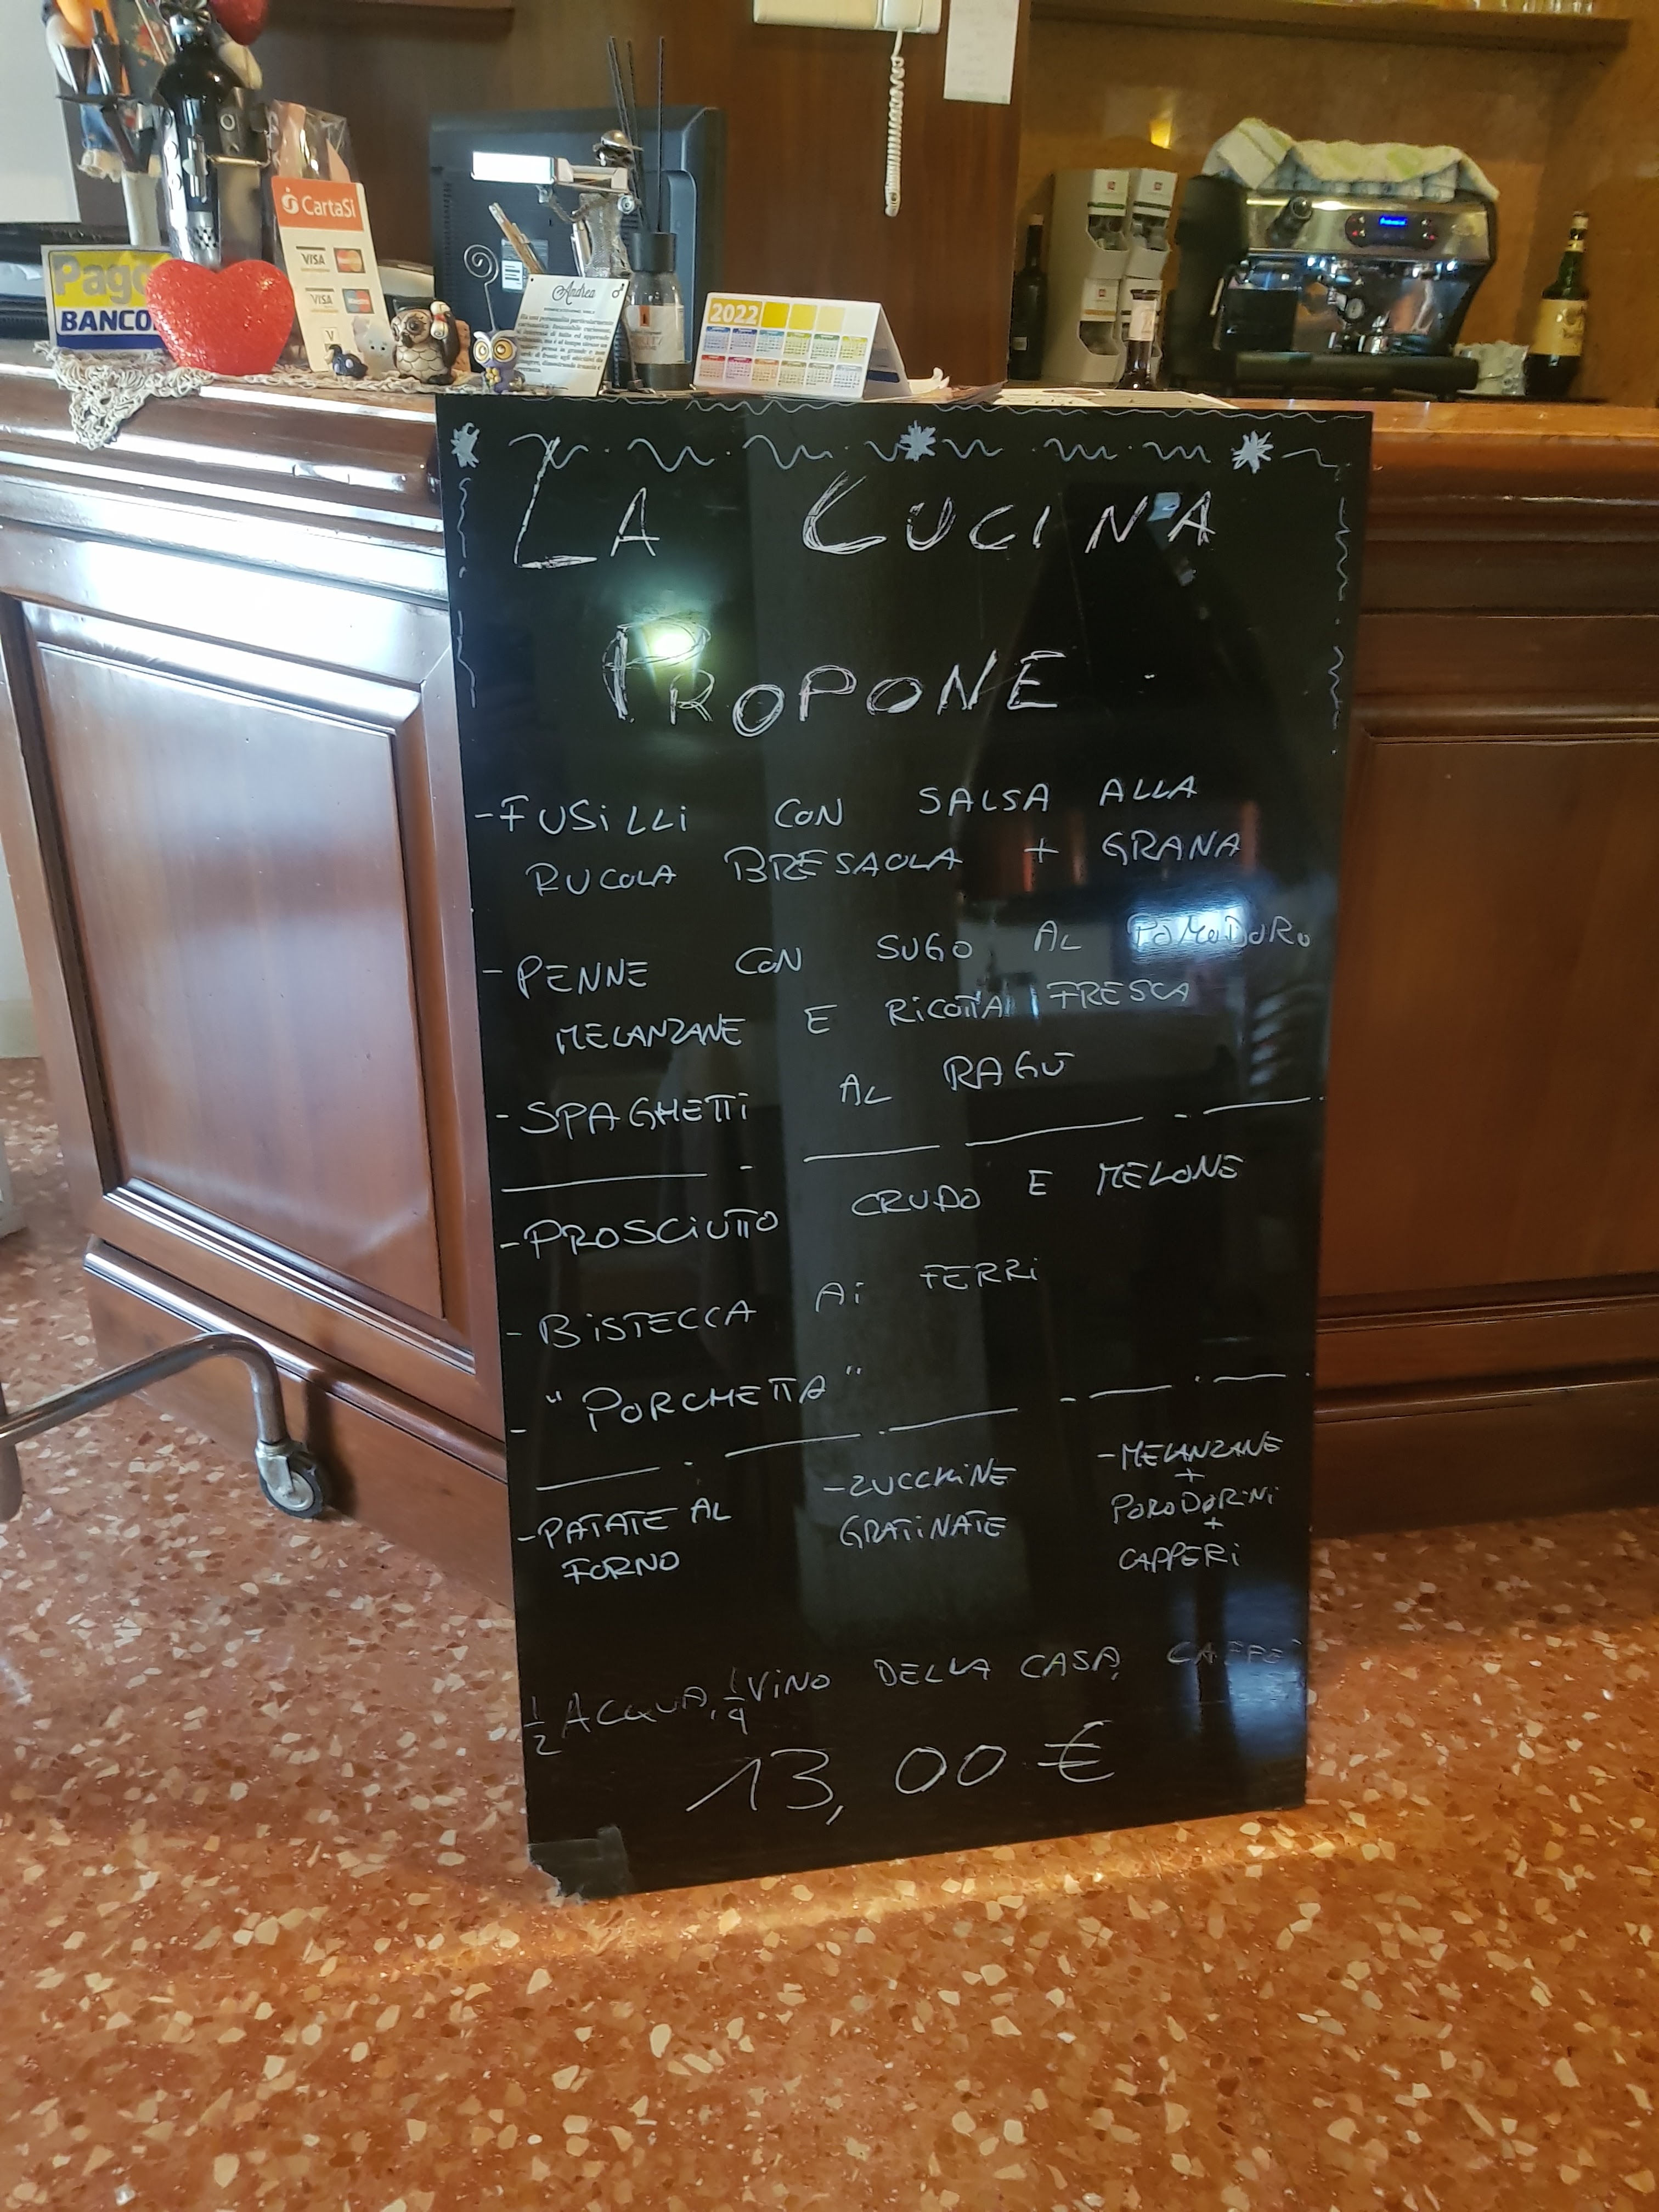 CartaSi
VISA
VISA
V
BANCO
Andrea
2022
LA CUCINA
PROPONE
- FUSILLI CON SALSA ALLA
RUCOLA BRESAOLA + GRANA
- PENNE CON SUGO AL POMODORO
MELANZANE E RICOTTA FRESCA
- SPAGHETTI AL RAGÙ
- PROSCIUTTO CRUDO E MELONE
- BISTECCA AI FERRI
- "PORCHETTA"
- PATATE AL
FORNO
- ZUCCHINE
GRATINATE
- MELANZANE
+
PORODORINI
+
CAPPERI
1/2 ACQUA, 1/4 VINO DELLA CASA, CAFFE'
13,00 €